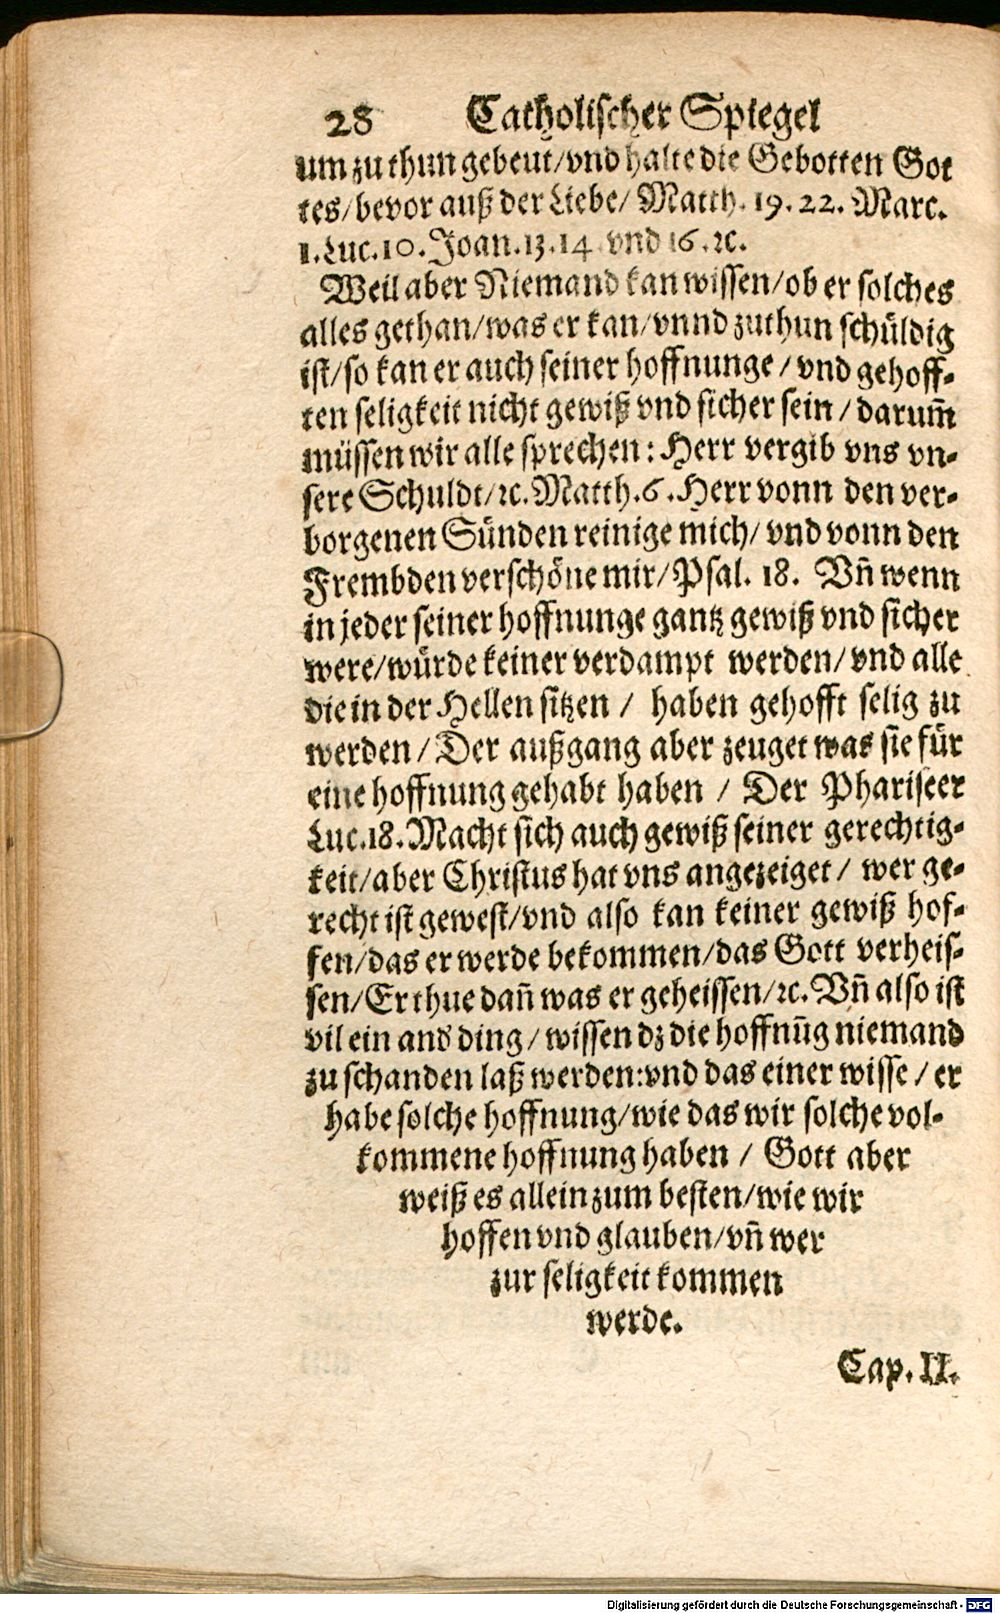 28 Catholischer Spiegel
um zu thun gebeut/vnd halte die Gebotten Got
tes/bevor auß der Liebe/ Matth. 19. 22. Marc.
1. Luc. 10. Joan. 13. 14 vnd 16. ꝛc.
Weil aber Niemand kan wissen/ob er solches
alles gethan/was er kan/vnnd zuthun schüldig
ist/so kan er auch seiner hoffnunge/vnd gehoff-
ten seligkeit nicht gewiß vnd sicher sein/darum̃
müssen wir alle sprechen: Herr vergib vns vn-
sere Schuldt/ꝛc. Matth. 6. Herr vonn den ver-
borgenen Sünden reinige mich/vnd vonn den
Frembden verschöne mir/Psal. 18. Vñ wenn
in jeder seiner hoffnunge gantz gewiß vnd sicher
were/würde keiner verdampt werden/vnd alle
die in der Hellen sitzen / haben gehofft selig zu
werden/Der außgang aber zeuget was sie für
eine hoffnung gehabt haben / Der Phariseer
Luc. 18. Macht sich auch gewiß seiner gerechtig-
keit/aber Christus hat vns angezeiget/ wer ge-
recht ist gewest/vnd also kan keiner gewiß hof-
fen/das er werde bekommen/das Gott verheis-
sen/Er thue dañ was er geheissen/ꝛc. Vñ also ist
vil ein and ding/wissen dz die hoffnũg niemand
zu schanden laß werden: vnd das einer wisse/er
habe solche hoffnung/wie das wir solche vol-
kommene hoffnung haben / Gott aber
weiß es allein zum besten/wie wir
hoffen vnd glauben/vñ wer
zur seligkeit kommen
werde.
Cap. II.
Digitalisierung gefördert durch die Deutsche Forschungsgemeinschaft - DFG